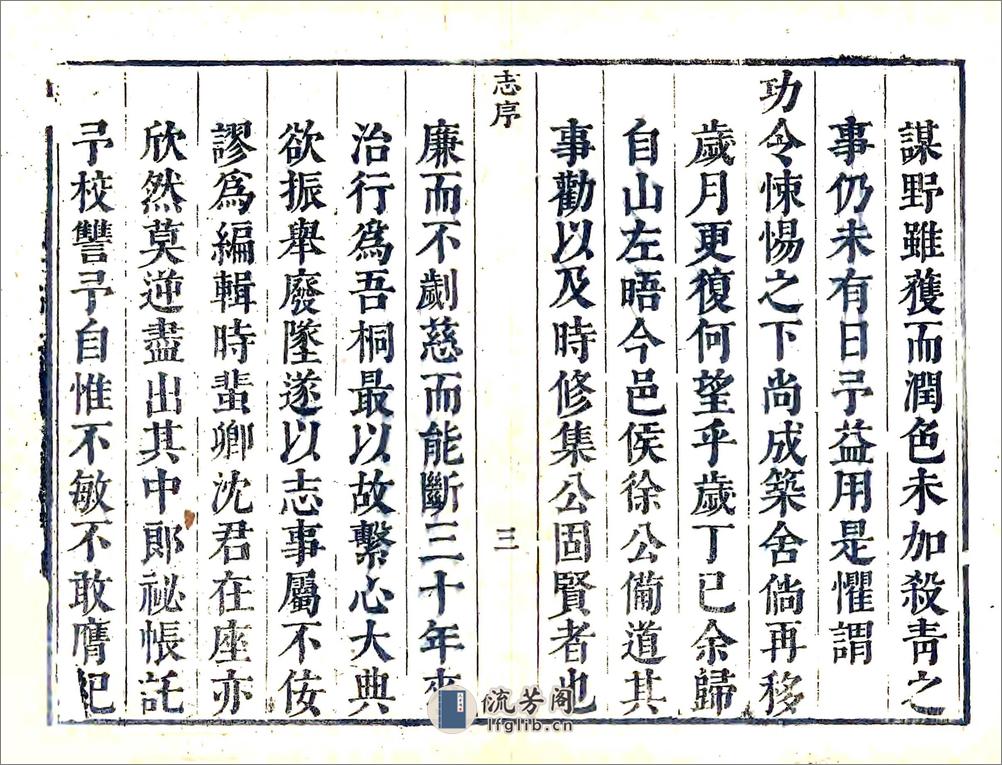 謀野雖獲而潤色未加殺青之
事仍未有日予益用是懼謂
功令悚惕之下尚成築舍倘再移
歲月更復何望乎歲丁巳余歸
自山左晤今邑侯徐公備道其
事勸以及時修集公固賢者也
志序
三
廉而不劌慈而能斷三十年來
治行爲吾桐最以故繫心大典
欲振舉廢墜遂以志事屬不佞
謬爲編輯時蜚卿沈君在座亦
欣然莫逆盡出其中郎祕帳託
予校讐予自惟不敏不敢膺祀
流芳阁
lfglib.cn